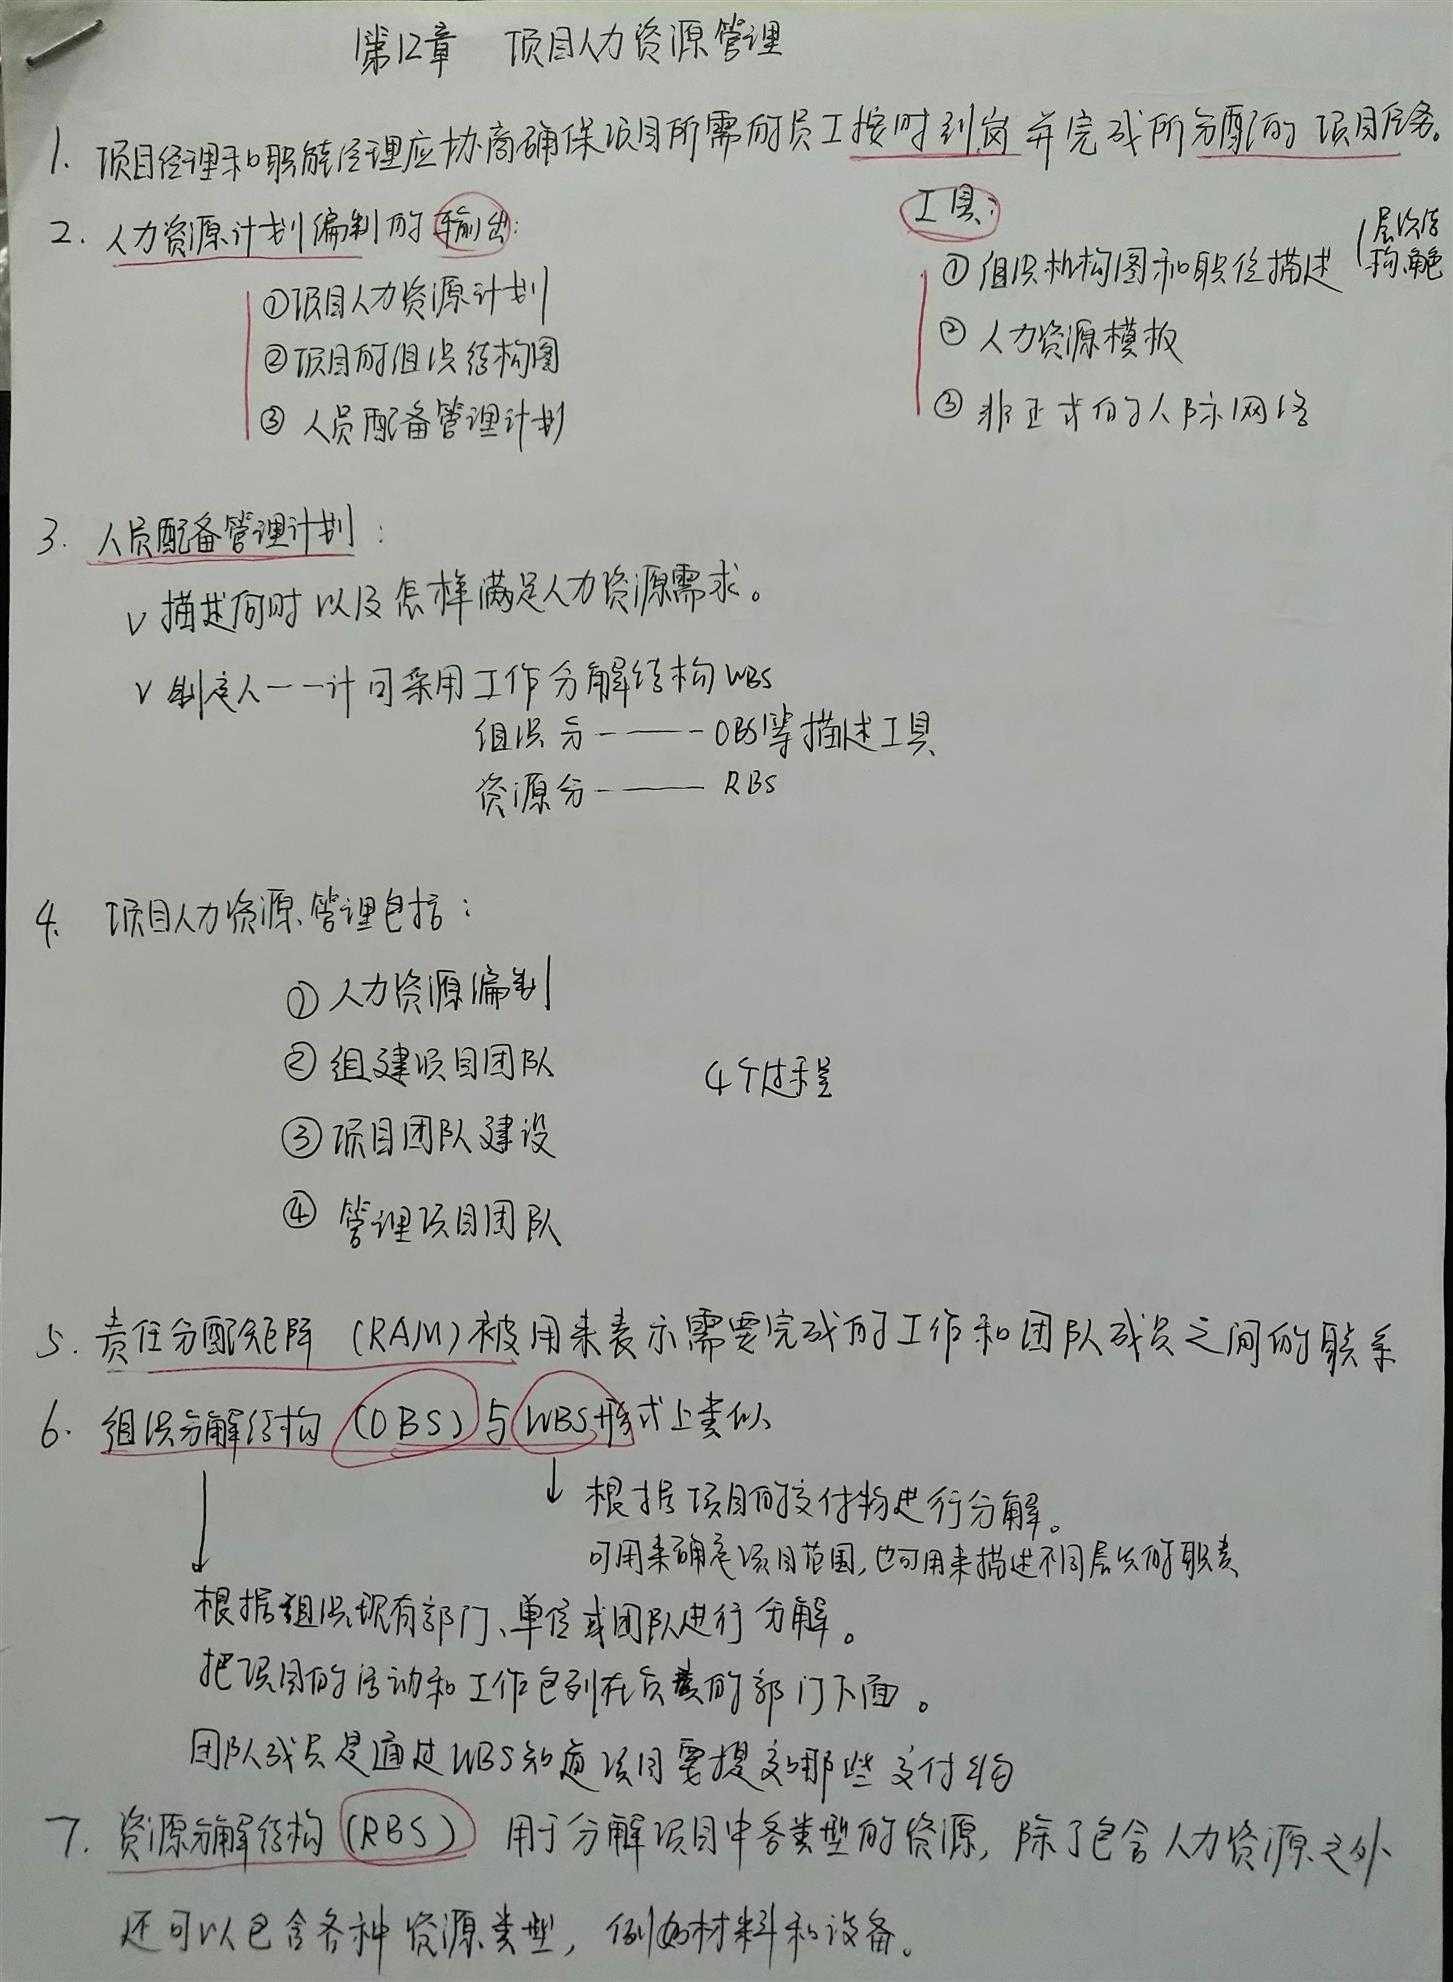 第12章 项目人力资源管理
1. 项目经理和职能经理应协商确保项目所需的员工按时到岗并完成所分配的项目任务。
2. 人力资源计划编制的输出:
①项目人力资源计划
②项目的组织结构图
③人员配备管理计划
工具:
①组织机构图和职位描述 (层次结
构、角色
②人力资源模板
③非正式的人际网络
3. 人员配备管理计划:
∨ 描述何时以及怎样满足人力资源需求。
∨ 制定人一一计可采用工作分解结构WBS
组织分-——-OBS等描述工具
资源分-——— RBS
4. 项目人力资源管理包括:
①人力资源编制
②组建项目团队
③项目团队建设
④管理项目团队
4个过程
5. 责任分配矩阵 (RAM) 被用来表示需要完成的工作和团队成员之间的联系
6. 组织分解结构 (OBS) 与 WBS 形式上类似
↓ 根据项目的交付物进行分解。
可用来确定项目范围,也可用来描述不同层次的职责
根据组织现有部门、单位或团队进行分解。
把项目的活动和工作包列在负责的部门下面。
团队成员是通过WBS知道项目要提交哪些交付物
7. 资源分解结构 (RBS) 用于分解项目中各类型的资源, 除了包含人力资源之外
还可以包含各种资源类型, 例如材料和设备。